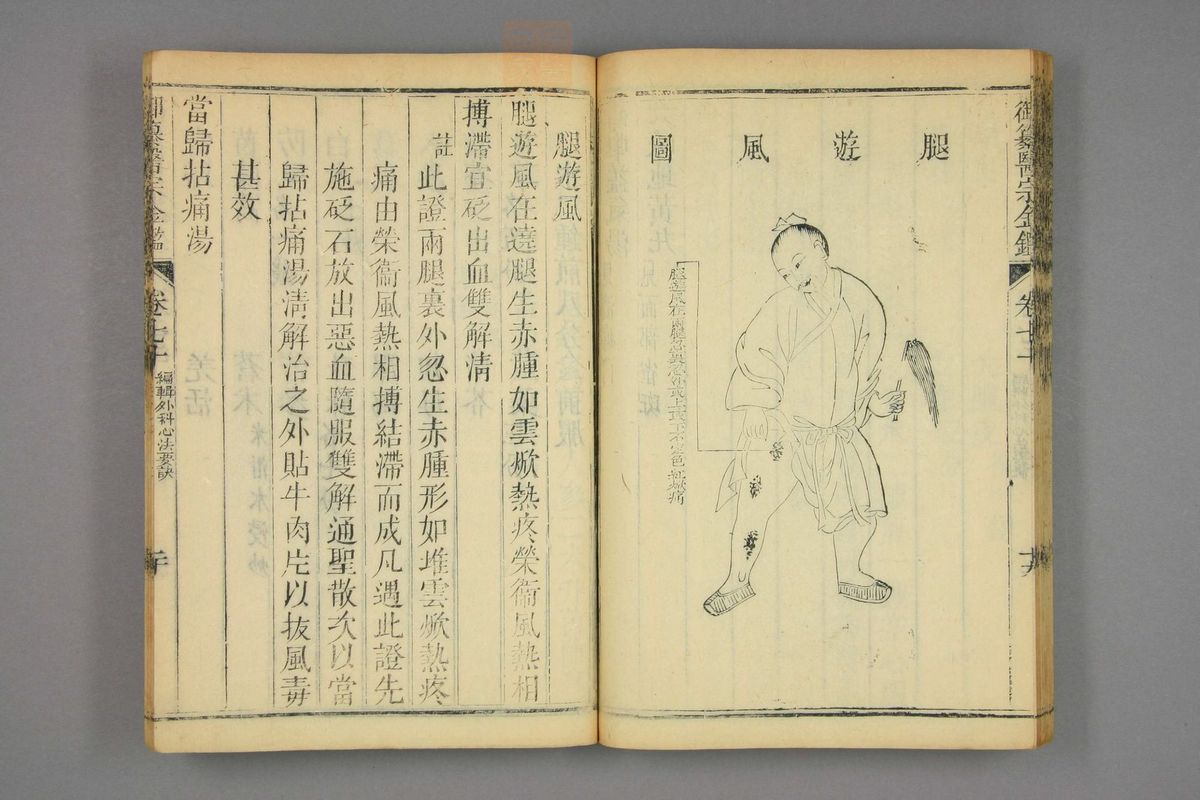 御纂醫宗金鑑 卷七十
腿遊風圖
腿遊風在兩腿忽裏忽外或上或下不定色紅焮痛
腿遊風
腿遊風在遶腿生赤腫如雲焮熱疼榮衞風熱相
搏滯宜砭出血雙解清
註此證兩腿裏外忽生赤腫形如堆雲焮熱疼
痛由榮衞風熱相搏結滯而成凡遇此證先
施砭石放出惡血隨服雙解通聖散次以當
歸拈痛湯清解治之外貼牛肉片以拔風毒
甚效
當歸拈痛湯
御纂醫宗金鑑 卷七十 編輯外科心法要訣 二十